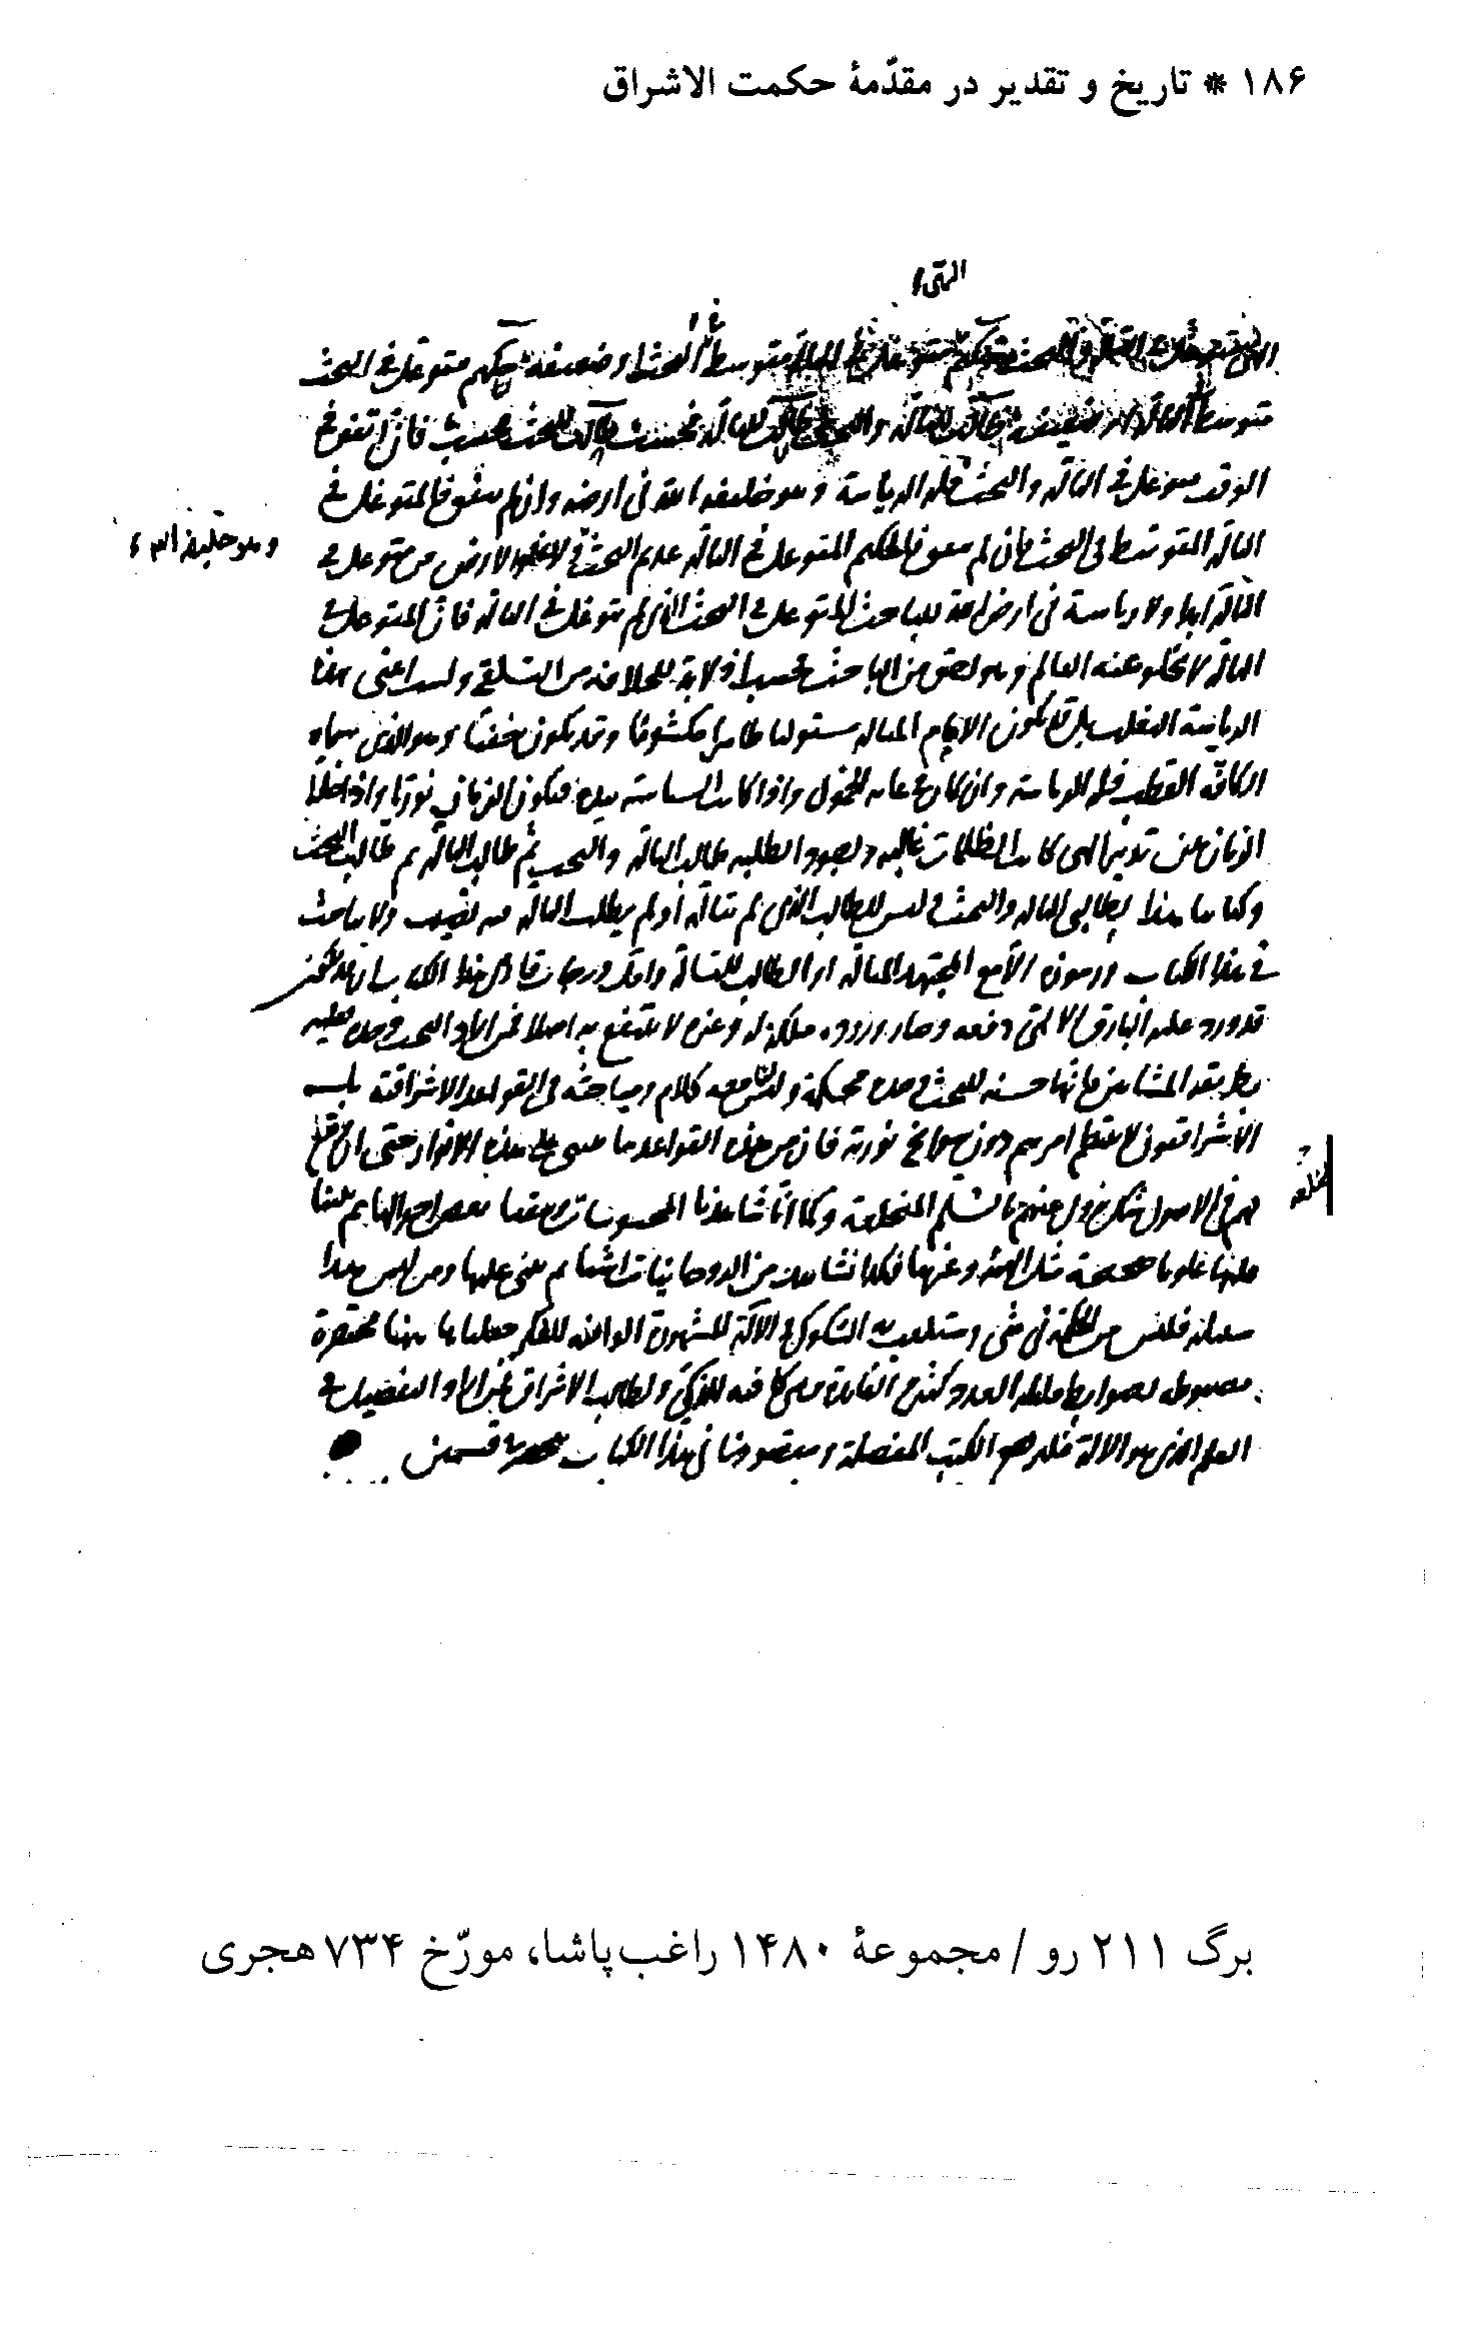 ۱۸۶ * تاریخ و تقدیر در مقدّمهٔ حکمت الاشراق
متوغل فی التاله متوسط فی البحث او ضعیفه حکیم متوغل فی البحث
متوسط فی التاله او ضعیفه طالب للتاله والبحث طالب للتاله فحسب طالب للبحث فحسب فان اتفق فی
الوقت متوغل فی التاله والبحث فله الریاسة وهو خلیفه الله فی ارضه وان لم یتفق فالمتوغل فی
التاله المتوسط فی البحث فان لم یتفق فالحکیم المتوغل فی التاله عدیم البحث لا تخلو الارض من متوغل فی
وهو خلیفة الله
التاله ابدا ولا ریاسة فی ارض الله للباحث المتوغل فی البحث الذی لم یتوغل فی التاله فان المتوغل فی
التاله لا یخلو عنه العالم وهو احق من الباحث فحسب اذ لا بد للخلافه من التلقی ولست اعنی بهذا
الریاسة التغلب بل قد یکون الامام المتاله مستولیا ظاهرا مکشوفا وقد یکون خفیا وهو الذی سماه
الکافة القطب فله الریاسة وان کان فی غایه الخمول واذا کانت السیاسة بیده فیکون الزمان نوریا واذا خلا
الزمان عن تدبیر الهی کانت الظلمات غالبه واجود الطلبه طالب التاله والبحث ثم طالب التاله ثم طالب البحث
وکتابنا هذا لطالبی التاله والبحث ولیس للطالب الذی لم یتاله او لم یطلب التاله فیه نصیب ولا نباحث
فی هذا الکتاب ورموزه الا مع المجتهد المتاله او الطالب للتاله واقل درجات قاری هذا الکتاب ان یکون
قد ورد علیه البارق الالهی دفعه وصار وروده ملکة له وغیره لا ینتفع به اصلا فمن اراد البحث وحده فعلیه
بطریقه المشائین فانها حسنه للبحث وحده محکمة ولیس معه کلام ومباحثه فی القواعد الاشراقیة بل
الاشراقیون لا ینتظم امرهم دون سوانح نوریة فان من هذه القواعد ما یبتنی علی هذه الانوار حتی ان وقع
لهم فی الاصول شک یزول عنهم بالسلم المنخلعة وکما انا شاهدنا المحسوسات وتیقنا بعض احوالها ثم بنینا
علیها علوما صحیحة مثل الهیئه وغیرها فکذا نشاهد من الروحانیات اشیاء ثم نبنی علیها ومن لیس هذا
سبیله فلیس من الحکمة فی شی وستلعب به الشکوک والآلة المشهورة الواقیة للفکر جعلناها هنا مختصرة
مضبوطه بضوابط قلیله العدد کثیرة الفائدة وهی کافیه للذکی ولطالب الاشراق ومن اراد التفصیل فی
العلم الذی هو الآلة فلیرجع الی الکتب المفصلة ومقصودنا فی هذا الکتاب ینحصر فی قسمین
برگ ۲۱۱ رو / مجموعهٔ ۱۴۸۰ راغب پاشا، مورّخ ۷۳۴ هجری